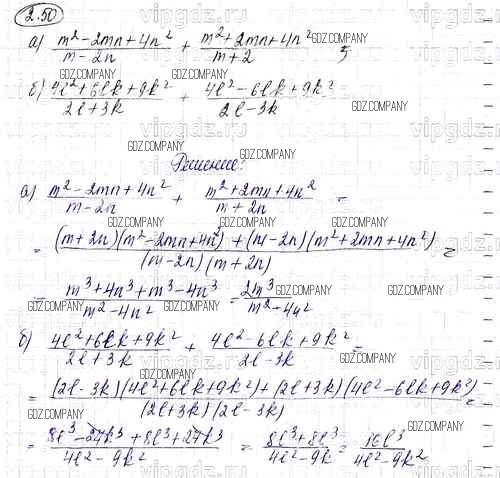 2.50
а) (m²-2mn+4n²)/(m-2n) + (m²+2mn+4n²)/(m+2) ;
б) (4l²+6lk+9k²)/(2l+3k) + (4l²-6lk+9k²)/(2l-3k)
Решение:
а) (m²-2mn+4n²)/(m-2n) + (m²+2mn+4n²)/(m+2n) =
= ((m+2n)(m²-2mn+4n²)+(m-2n)(m²+2mn+4n²))/((m-2n)(m+2n)) =
= (m³+4n³+m³-4n³)/(m²-4n²) = 2m³/(m²-4n²)
б) (4l²+6lk+9k²)/(2l+3k) + (4l²-6lk+9k²)/(2l-3k) =
= ((2l-3k)(4l²+6lk+9k²)+(2l+3k)(4l²-6lk+9k²))/((2l+3k)(2l-3k)) =
= (8l³-27k³+8l³+27k³)/(4l²-9k²) = (8l³+8l³)/(4l²-9k) = 16l³/(4l²-9k²)